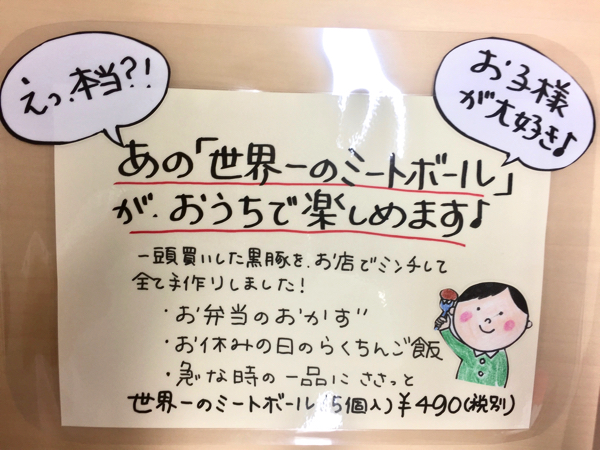 えっ、本当?!
お子様
が大好き♪
あの「世界一のミートボール」
が、おうちで楽しめます♪
一頭買いした黒豚を、お店でミンチして
全て手作りしました!
・お弁当のおかず
・お休みの日のらくちんご飯
・急な時の一品に ささっと
世界一のミートボール(5個入)¥490(税別)